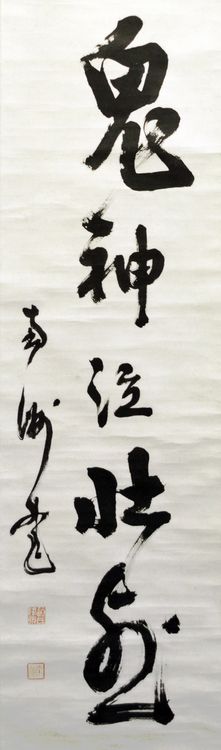 鬼神泣壮烈
南洲書